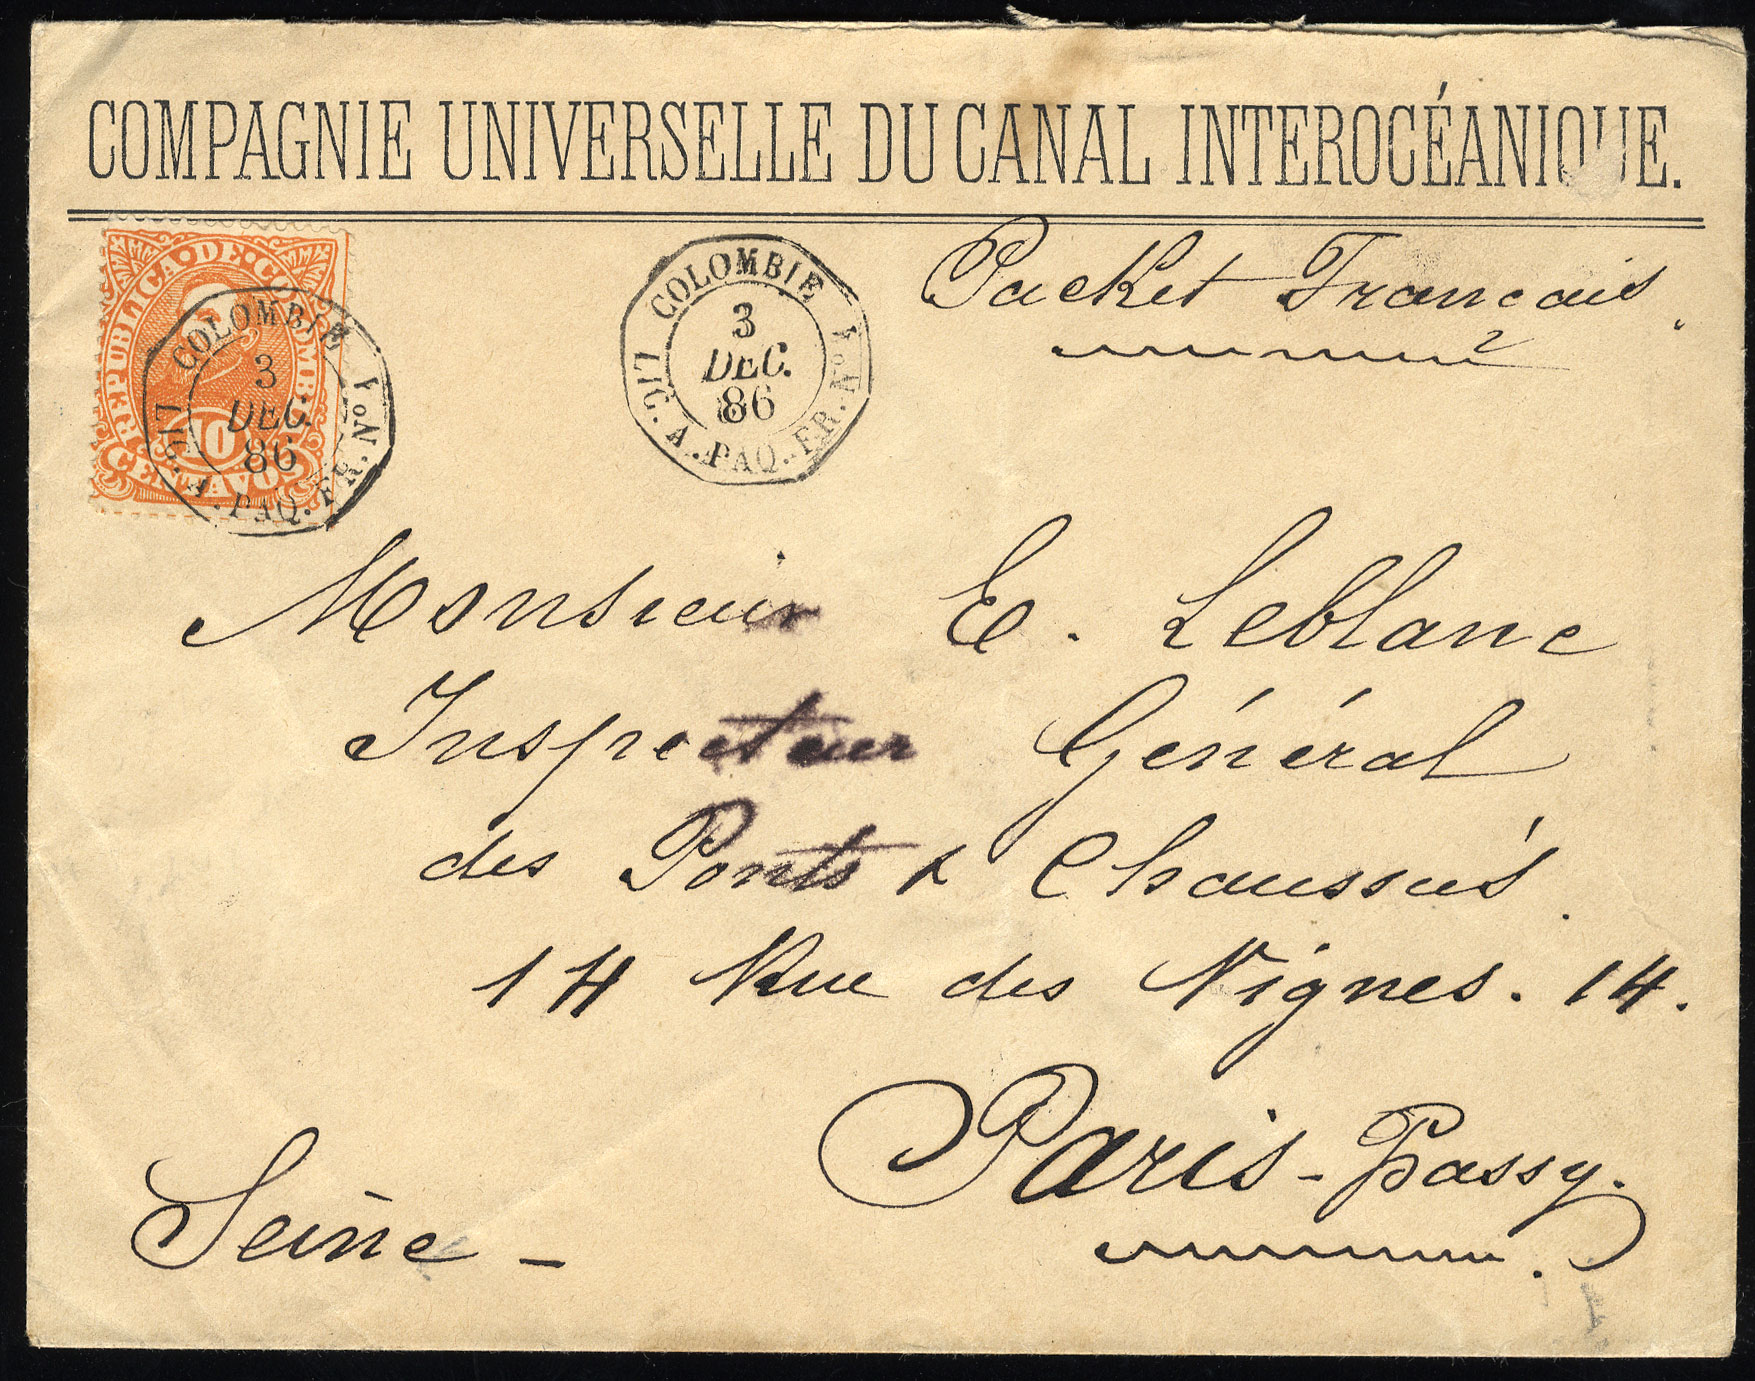 COMPAGNIE UNIVERSELLE DU CANAL INTEROCÉANIQUE.
REPUBLICA·DE·COLOMB
10
CENTAVOS
COLOMBIE
3
DEC.
86
LIG. A. PAQ. FR. No 1
COLOMBIE
3
DEC.
86
LIG. A. PAQ. FR. No 1
Packet Francais.
Monsieur E. Leblanc
Inspecteur Général
des Ponts & Chaussés.
14 Rue des Vignes. 14.
Paris-Passy.
Seine –